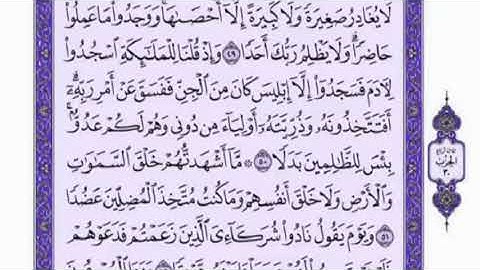 لَا يُغَادِرُ صَغِيرَةً وَلَا كَبِيرَةً إِلَّآ أَحْصَىٰهَا ۚ وَوَجَدُوا۟ مَا عَمِلُوا۟
حَاضِرًا ۗ وَلَا يَظْلِمُ رَبُّكَ أَحَدًا ٤٩ وَإِذْ قُلْنَا لِلْمَلَٰٓئِكَةِ ٱسْجُدُوا۟
لِءَادَمَ فَسَجَدُوٓا۟ إِلَّآ إِبْلِيسَ كَانَ مِنَ ٱلْجِنِّ فَفَسَقَ عَنْ أَمْرِ رَبِّهِۦٓ ۗ
أَفَتَتَّخِذُونَهُۥ وَذُرِّيَّتَهُۥٓ أَوْلِيَآءَ مِن دُونِى وَهُمْ لَكُمْ عَدُوٌّۢ ۚ
بِئْسَ لِلظَّٰلِمِينَ بَدَلًا ٥٠ ۞ مَّآ أَشْهَدتُّهُمْ خَلْقَ ٱلسَّمَٰوَٰتِ
وَٱلْأَرْضِ وَلَا خَلْقَ أَنفُسِهِمْ وَمَا كُنتُ مُتَّخِذَ ٱلْمُضِلِّينَ عَضُدًا
٥١ وَيَوْمَ يَقُولُ نَادُوا۟ شُرَكَآءِىَ ٱلَّذِينَ زَعَمْتُمْ فَدَعَوْهُمْ
الحزب
٣٠